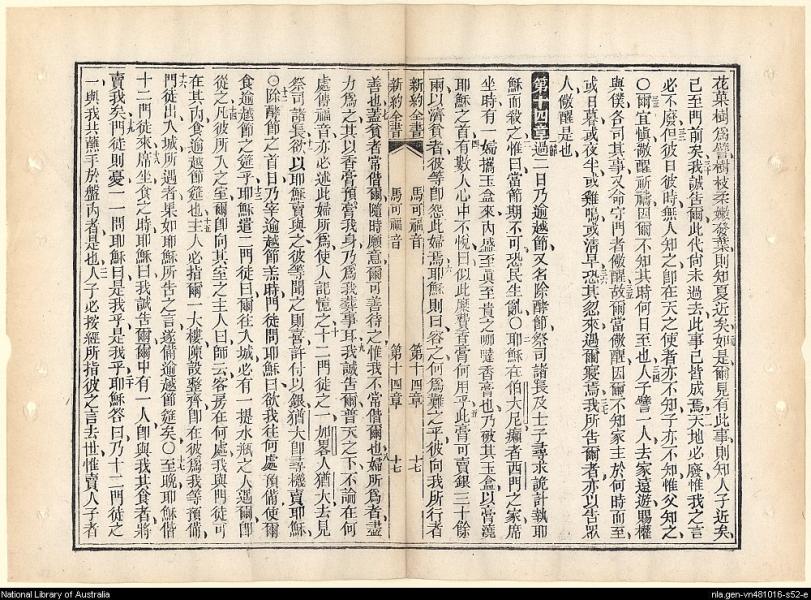 花葉樹爲譬樹枝柔嫩發葉則知夏近矣如是爾見有此事則知人子近矣
已至門前矣我誠告爾此代尚未過去此事已皆成焉天地必廢惟我之言
必不廢但彼日彼時無人知之卽在天之使者亦不知子亦不知惟父知之
〇爾宜愼儆醒祈禱因爾不知其時何日至也人子譬一人去家遠遊賜權
與僕各司其事又命守門者儆醒故爾當儆醒因爾不知家主於何時而至
或日暮或夜半或雞鳴或清早恐其忽來遇爾寢焉我所告爾者亦以告眾
人儆醒是也
第十四章過二日乃逾越節又名除酵節祭司諸長及士子尋求詭計執耶
穌而殺之惟曰當節期不可恐民生亂〇耶穌在伯大尼癩者西門之家席
坐時有一婦攜玉盒來內盛至眞至貴之哪噠香膏也乃破其玉盒以膏澆
耶穌之首有數人心中不悅曰似此糜費香膏何用乎此膏可賣銀三十餘
兩以濟貧者彼等卽怨此婦焉耶穌則曰容之何爲難之乎彼向我所行者
新約全書 馬可福音 第十四章 十七
新約全書 馬可福音 第十四章 十七
善也蓋貧者常偕爾隨時願意爾可善待之惟我不常偕爾也婦所爲者盡
力爲之其以香膏預膏我身乃爲我葬事耳我誠告爾普天之下不論在何
處傳福音亦必述此婦所爲使人記憶之十二門徒之一加畧人猶大去見
祭司諸長欲以耶穌賣與之彼等聞之則喜許付以銀猶大卽尋機賣耶穌
〇除酵節之首日乃宰逾越節羔時門徒問耶穌曰欲我往何處預備使爾
食逾越節之筵乎耶穌遣二門徒曰爾往入城必有一提水瓶之人遇爾卽
從之凡彼所入之室爾卽向其室之主人曰師云客房在何處我與門徒可
在其內食逾越節筵也主人必指爾一大樓陳設整齊卽在彼爲我等預備
門徒出入城所遇者果如耶穌所告之言遂備逾越節筵矣〇至晚耶穌偕
十二門徒來席坐食之時耶穌曰我誠告爾爾中有一人卽與我其食者將
賣我矣門徒則憂一一問耶穌曰是我乎是我乎耶穌答曰乃十二門徒之
一與我共蘸手於盤內者是也人子必按經所指彼之言去世惟賣人子者
National Library of Australia
nla.gen-vn481016-s52-e